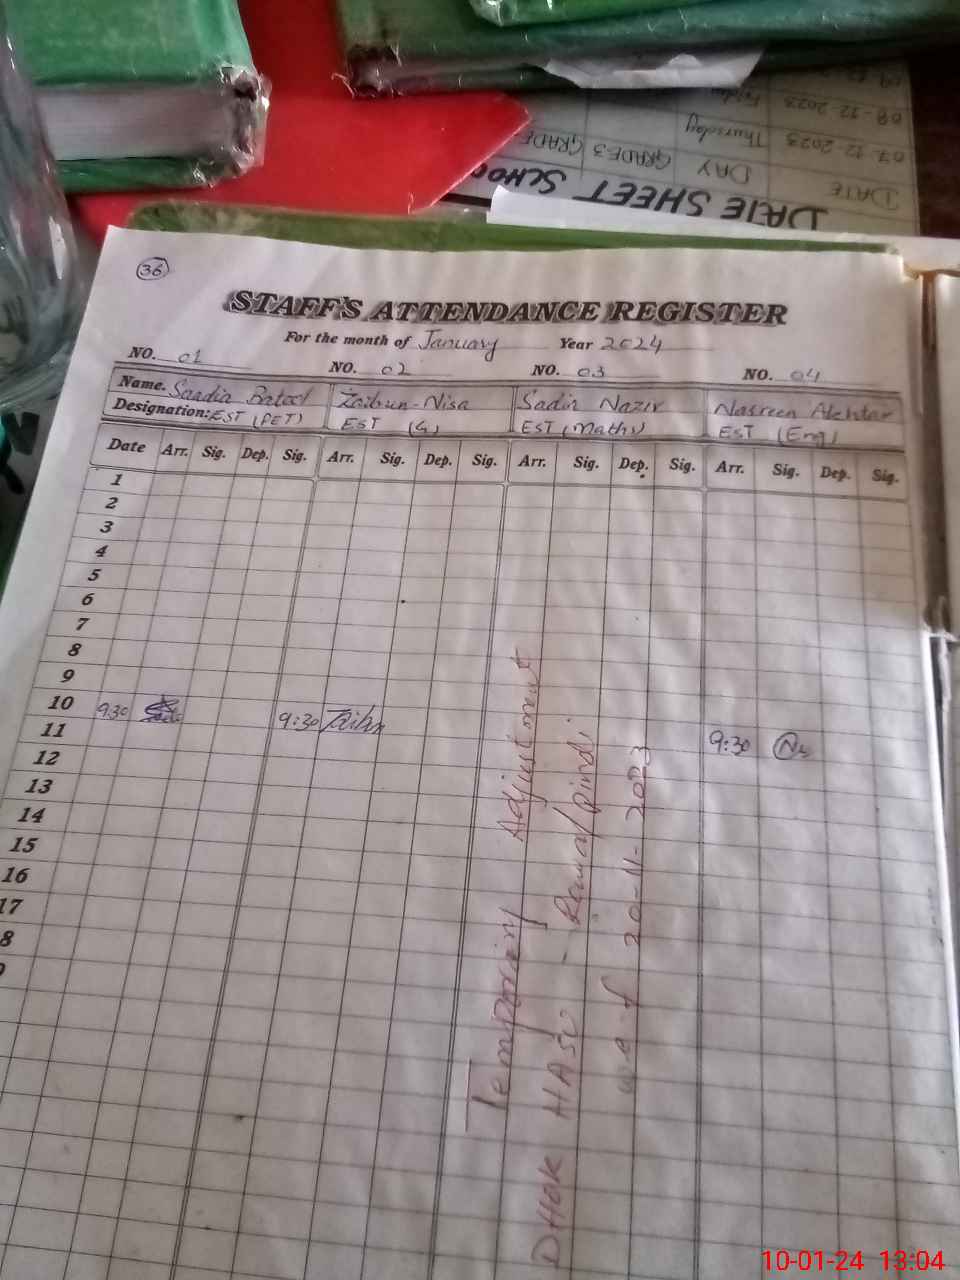 DATE SHEET SCHOO
DATE DAY GRADE 3 GRADE
07-12-2023 Thursday
08-12-2023
36
STAFF'S ATTENDANCE REGISTER
For the month of January Year 2024
NO. 01 NO. 02 NO. 03 NO. 04
Name. Saadia Batool Zaibun-Nisa Sadia Nazir Nasreen Akhtar
Designation: EST (PET) EST EST (Maths) EST (Eng)
Date Arr. Sig. Dep. Sig. Arr. Sig. Dep. Sig. Arr. Sig. Dep. Sig. Arr. Sig. Dep. Sig.
1
2
3
4
5
6
7
8
9
10 9:30 9:30 9:30
11
12
13
14
15
16
17
8
Temporary Adjustment
DHok HASU Rawalpindi
w.e.f 20-11-2023
10-01-24 13:04